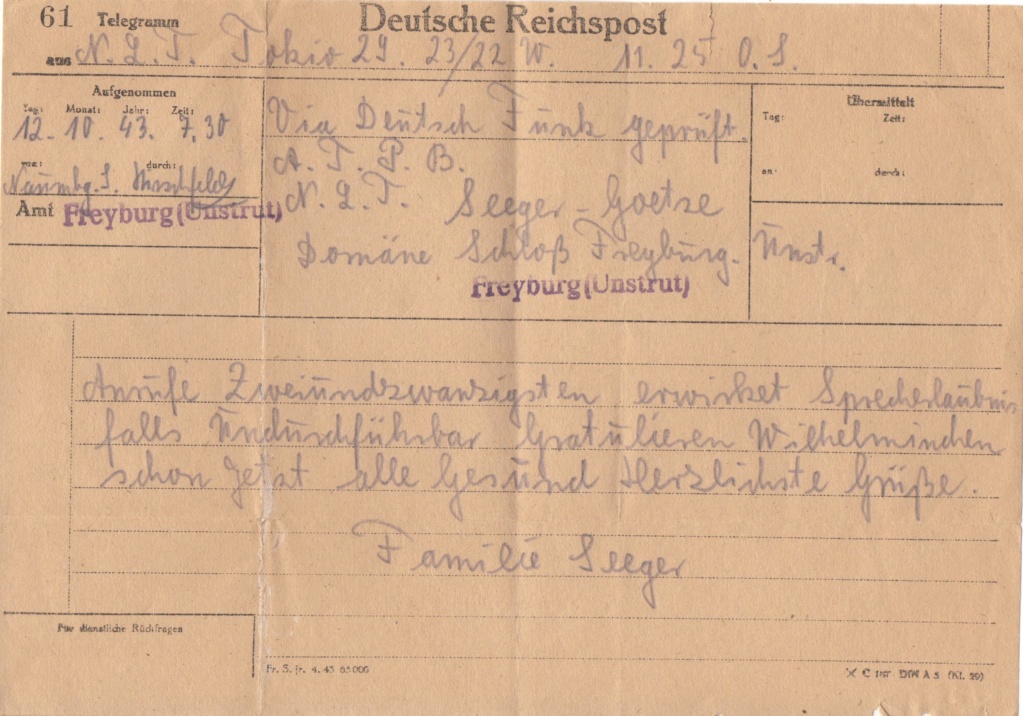 61 Telegramm Deutsche Reichspost
aus N. L. T. Tokio 29. 23/22 W. 11. 25 O. S.
Aufgenommen
Tag: Monat: Jahr: Zeit:
12. 10. 43. 7,30
von: durch:
Naumbg. S.
Amt Freyburg (Unstrut)
Via Deutsch Funk geprüft.
A. T. P. B.
N. L. T. Seeger-Goetze
Domäne Schloß Freyburg. Unstr.
Freyburg (Unstrut)
Übermittelt
Tag: Zeit:
an: durch:
Anrufe Zweiundzwanzigsten erwirket Sprecherlaubnis
falls Undurchführbar Gratulieren Wilhelminchen
schon Jetzt alle Gesund Herzlichste Grüße.
Familie Seeger
Für dienstliche Rückfragen
4. 43
C DIN A 5 (Kl. 29)